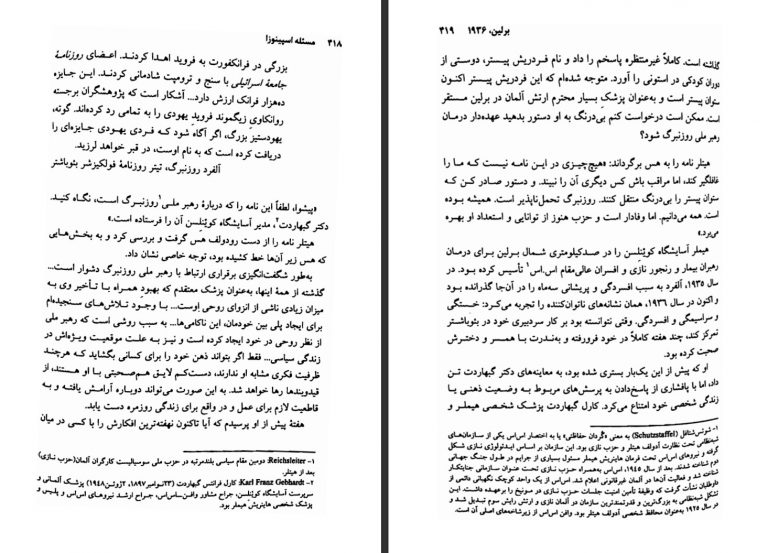 ۴۱۸   مسئله اسپینوزا
بزرگی در فرانکفورت به فروید اهدا کردند. اعضای روزنامهٔ
جامعهٔ اسرائیلی با سنج و ترومپت شادمانی کردند. این جایزه
ده‌هزار فرانک ارزش دارد... آشکار است که پژوهشگران برجسته
روانکاوی زیگموند فروید یهودی را به تمامی رد کرده‌اند. گوته،
یهودستیز بزرگ، اگر آگاه شود که فردی یهودی جایزه‌ای را
دریافت کرده است که به نام اوست، در قبر خواهد لرزید.
آلفرد روزنبرگ، تیتر روزنامهٔ فولکیزشر بئوباشتر
«پیشوا، لطفاً این نامه را که دربارهٔ رهبر ملی۱ روزنبرگ است، نگاه کنید.
دکتر گبهاردت۲، مدیر آسایشگاه کوئنلسن آن را فرستاده است.»
هیتلر نامه را از دست رودولف هس گرفت و بررسی کرد و به بخش‌هایی
که هس زیر آن‌ها خط کشیده بود، توجه خاصی نشان داد.
به‌طور شگفت‌انگیزی برقراری ارتباط با رهبر ملی روزنبرگ دشوار است...
گذشته از همهٔ اینها، به‌عنوان پزشک معتقدم که بهبود همراه با تأخیر وی به
میزان زیادی ناشی از انزوای روحی اوست... با وجود تلاش‌های سنجیده‌ام
برای ایجاد پلی بین خودمان، این ناکامی‌ها... به سبب روشی است که رهبر ملی
از نظر روحی در خود ایجاد کرده است و نیز به علت موقعیت ویژه‌اش در
زندگی سیاسی... فقط اگر بتواند ذهن خود را برای کسانی بگشاید که هرچند
ظرفیت فکری مشابه او ندارند، دست‌کم لایق هم‌صحبتی با او هستند، از
قیدوبندها رها خواهد شد. به این صورت می‌تواند دوباره آرامش یافته و به
قاطعیت لازم برای عمل و در واقع برای زندگی روزمره دست یابد.
هفتهٔ پیش از او پرسیدم که آیا تاکنون نهفته‌ترین افکارش را با کسی در میان
۱- Reichsleiter: دومین مقام سیاسی بلندمرتبه در حزب ملی سوسیالیست کارگران آلمان(حزب نازی)
بعد از هیتلر.
۲- Karl Franz Gebhardt: کارل فرانتس گبهاردت (۲۳نوامبر۱۸۹۷، ۲ژوئن۱۹۴۸) پزشک آلمانی و
سرپرست آسایشگاه کوئنلسن، جراح مشاور وافن‌ساس‌اس، جراح ارشد نیروهای اس‌اس و پلیس و
پزشک شخصی هاینریش هیملر بود.
برلین، ۱۹۳۶   ۴۱۹
گذاشته است. کاملاً غیرمنتظره پاسخم را داد و نام فردریش پیستر، دوستی از
دوران کودکی در استونی را آورد. متوجه شده‌ام که این فردریش پیستر اکنون
ستوان پیستر است و به‌عنوان پزشک بسیار محترم ارتش آلمان در برلین مستقر
است. ممکن است درخواست کنم بی‌درنگ به او دستور بدهید عهده‌دار درمان
رهبر ملی روزنبرگ شود؟
هیتلر نامه را به هس برگرداند: «هیچ‌چیزی در این نامه نیست که ما را
غافلگیر کند، اما مراقب باش کس دیگری آن را نبیند. و دستور صادر کن که
ستوان پیستر را بی‌درنگ منتقل کنند. روزنبرگ تحمل‌ناپذیر است. همیشه بوده
است. همه می‌دانیم. اما وفادار است و حزب هنوز از توانایی و استعداد او بهره
می‌برد»
هیملر آسایشگاه کوئنلسن را در صدکیلومتری شمال برلین برای درمان
رهبران بیمار و رنجور نازی و افسران عالی‌مقام اس.اس۱ تأسیس کرده بود. در
سال ۱۹۳۵، آلفرد به سبب افسردگی و پریشانی سه‌ماه را در آن‌جا گذرانده بود
و اکنون در سال ۱۹۳۶، همان نشانه‌های ناتوان‌کننده را تجربه می‌کرد: خستگی
و سراسیمگی و افسردگی. وقتی نتوانسته بود بر کار سردبیری خود در بئوباشتر
تمرکز کند، چند هفته کاملاً در خود فرورفته و به‌ندرت با همسر و دخترش
صحبت کرده بود.
او که پیش از این یک‌بار بستری شده بود، به معاینه‌های دکتر گبهاردت تن
داد، اما با پافشاری از پاسخ‌دادن به پرسش‌های مربوط به وضعیت ذهنی یا
زندگی شخصی خود امتناع می‌کرد. کارل گبهاردت پزشک شخصی هیملر و
۱- شوتس‌شتافل (Schutzstaffel) به معنی «گردان حفاظتی» یا به اختصار اس‌اس یکی از سازمان‌های
شبه‌نظامی تحت نظارت آدولف هیتلر و حزب نازی بود. این سازمان بر اساس ایدئولوژی نازی شکل
گرفت و نیروهای اس‌اس تحت فرمان هاینریش هیملر مسئول بسیاری از جرایم در طول جنگ جهانی
دوم شناخته شدند. بعد از سال ۱۹۴۵، اس‌اس به‌همراه حزب نازی تحت عنوان سازمانی جنایتکار
شناخته شد و فعالیت آن‌ها در آلمان غیرقانونی اعلام شد. اس‌اس از یک واحد کوچک نگهبانی دائمی از
داوطلبان نشأت گرفت که وظیفهٔ تأمین امنیت جلسات حزب نازی در مونیخ را برعهده داشت. این
تشکل شبه‌نظامی به بزرگ‌ترین و قدرتمندترین سازمان در آلمان نازی و رتش رایش سوم تبدیل شد و
در ۱۹۲۵ به‌عنوان محافظ شخصی آدولف هیتلر بود. وافن اس‌اس از زیرشاخه‌های اصلی آن است.